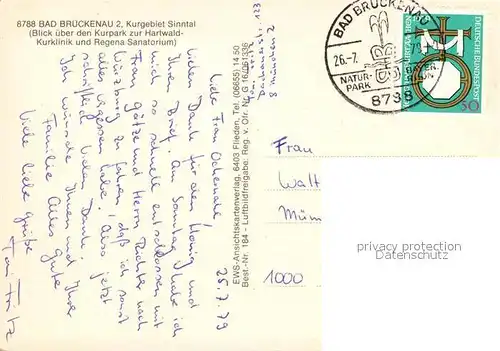 8788 BAD BRÜCKENAU 2, Kurgebiet Sinntal
(Blick über den Kurpark zur Hartwald-
Kurklinik und Regena Sanatorium)
25.7.79
Liebe Frau
vielen Dank für den Honig und
Ihren Brief. Am Sonntag habe ich
mich so schnell entschlossen mit
Frau Götze und Herrn Richter nach
Würzburg zu fahren, daß ich sonst
alles vergessen habe. Also jetzt
vielen Dank.
Ich wünsche Ihnen und Ihrer
Familie alles Gute
Viele liebe Grüße
EWS-Ansichtskartenverlag, 6403 Flieden, Tel. (06655) 14 50
Best.-Nr. 184 - Luftbildfreigabe: Reg. v. Obf. Nr. G 16/061336
123
8 München 2
BAD BRÜCKENAU
26.-7.
NATUR-
PARK
8788
DEUTSCHE BUNDESPOST
50
Frau
Walt
Mün
1000
privacy protection
watermark